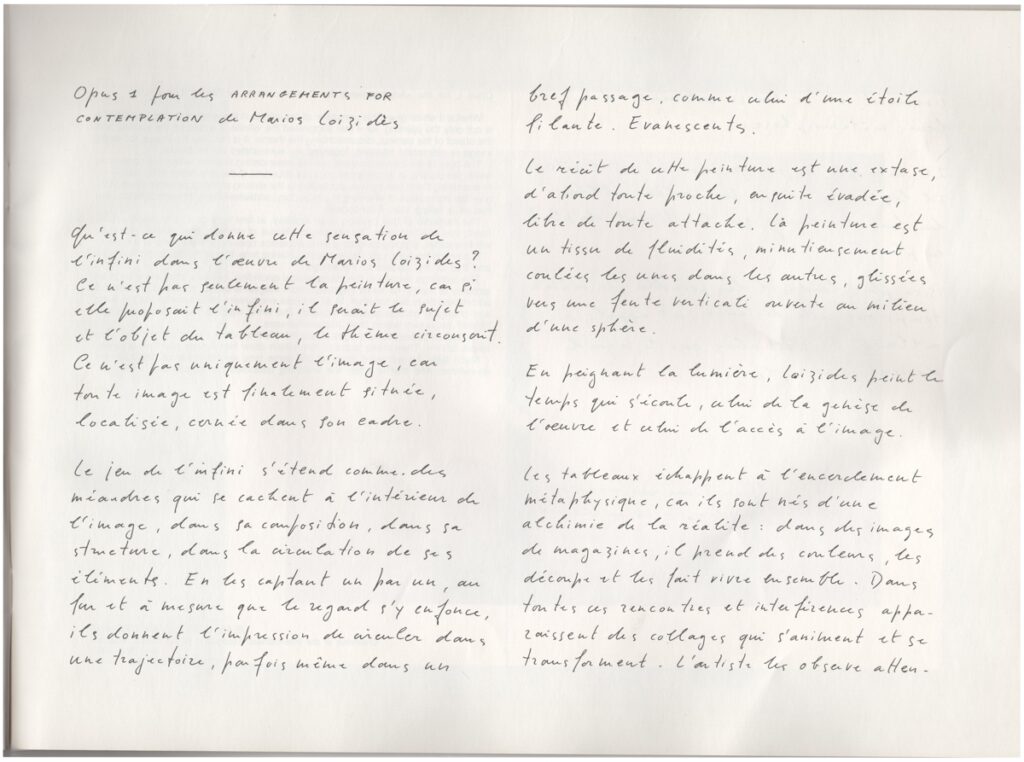 Opus 1 pour les ARRANGEMENTS FOR
CONTEMPLATION de Marios Loizidès
Qu'est-ce qui donne cette sensation de
l'infini dans l'œuvre de Marios Loizides?
Ce n'est pas seulement la peinture, car si
elle proposait l'infini, il serait le sujet
et l'objet du tableau, le thème circonscrit.
Ce n'est pas uniquement l'image, car
toute image est finalement située,
localisée, cernée dans son cadre.
Le jeu de l'infini s'étend comme des
méandres qui se cachent à l'intérieur de
l'image, dans sa composition, dans sa
structure, dans la circulation de ses
éléments. En les captant un par un, au
fur et à mesure que le regard s'y enfonce,
ils donnent l'impression de circuler dans
une trajectoire, parfois même dans un
bref passage, comme celui d'une étoile
filante. Evanescents.
Le récit de cette peinture est une extase,
d'abord toute proche, ensuite évadée,
libre de toute attache. Là peinture est
un tissu de fluidités, minutieusement
coulées les unes dans les autres, glissées
vers une fente verticale ouverte au milieu
d'une sphère.
En peignant la lumière, Loizides peint le
temps qui s'écoule, celui de la genèse de
l'oeuvre et celui de l'accès à l'image.
Les tableaux échappent à l'encerclement
métaphysique, car ils sont nés d'une
alchimie de la réalité : dans des images
de magazines, il prend des couleurs, les
découpe et les fait vivre ensemble. Dans
toutes ces rencontres et interférences appa-
raissent des collages qui s'animent et se
transforment. L'artiste les observe atten-